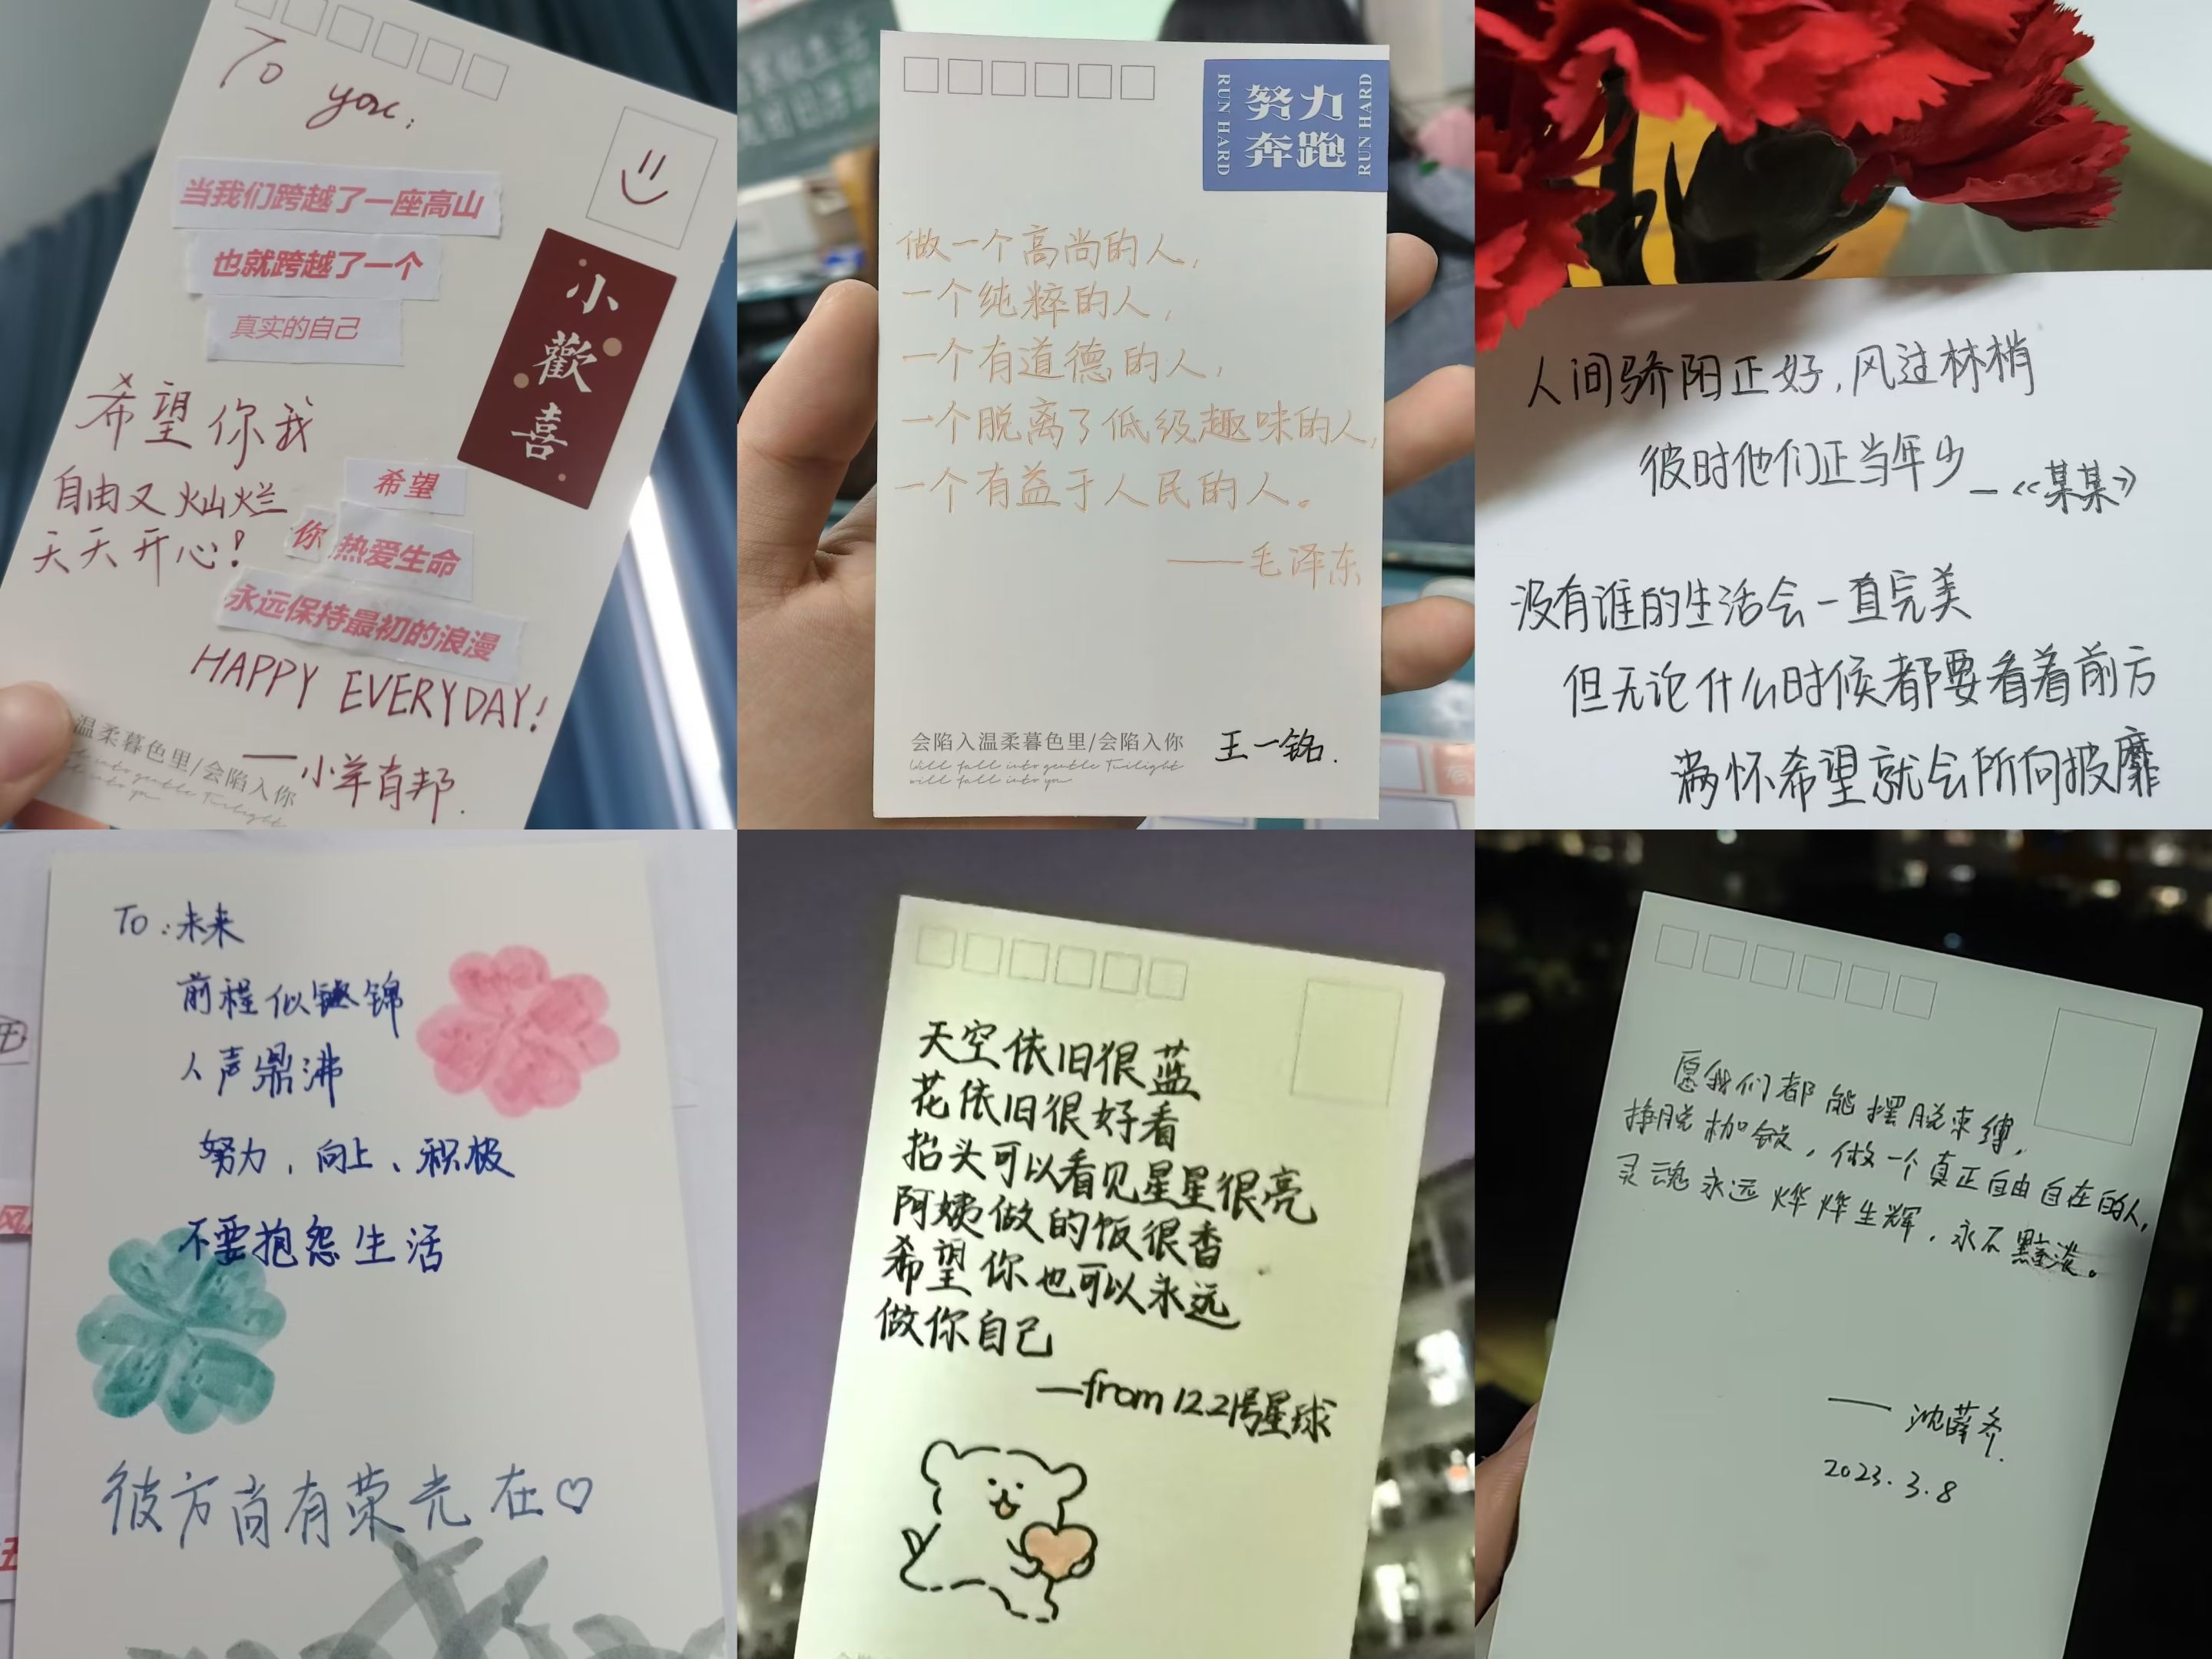 To you:
当我们跨越了一座高山
也就跨越了一个
真实的自己
小歡喜
希望你我
自由又灿烂
天天开心!
希望
你热爱生命
永远保持最初的浪漫
HAPPY EVERYDAY!
——小羊肖邦.
温柔暮色里/会陷入你
努力
奔跑
RUN HARD
RUN HARD
做一个高尚的人,
一个纯粹的人,
一个有道德的人,
一个脱离了低级趣味的人,
一个有益于人民的人。
——毛泽东
会陷入温柔暮色里/会陷入你
Will fall into gentle Twilight
will fall into you
王一铭.
人间骄阳正好,风过林梢
彼时他们正当年少_—《某某》
没有谁的生活会一直完美
但无论什么时候都要看着前方
满怀希望就会所向披靡
TO:未来
前程似锦
人声鼎沸
努力,向上、积极
不要抱怨生活
彼方尚有荣光在♡
天空依旧很蓝
花依旧很好看
抬头可以看见星星很亮
阿姨做的饭很香
希望你也可以永远
做你自己
—from 122号星球
愿我们都能摆脱束缚,
挣脱枷锁,做一个真正自由自在的人,
灵魂永远烨烨生辉,永不黯淡。
2023.3.8